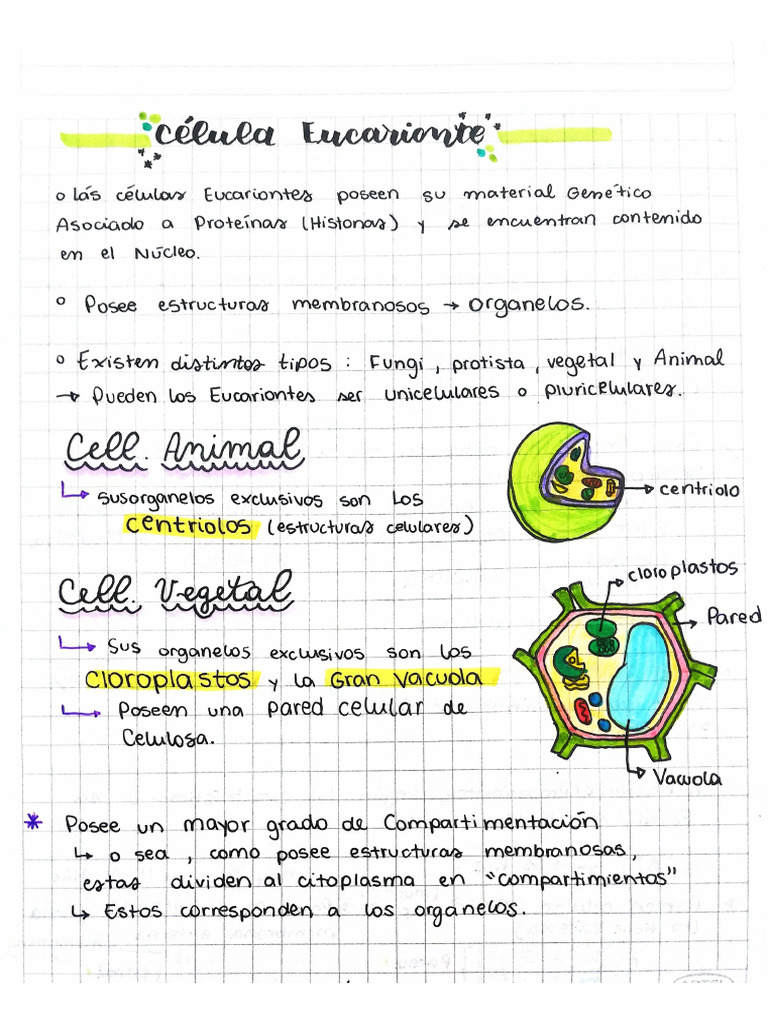 Célula Eucarionte
o lás células Eucariontes poseen su material Genético
Asociado a Proteínas (Histonas) y se encuentran contenido
en el Núcleo.
o Posee estructuras membranosos → organelos.
o Existen distintos tipos : Fungi, protista, vegetal y Animal
→ Pueden los Eucariontes ser unicelulares o pluricelulares.
Cell. Animal
↳ susorganelos exclusivos son los
centriolos (estructuras celulares)
centriolo
Cell. Vegetal
↳ Sus organelos exclusivos son los
cloroplastos y la Gran vacuola
↳ Poseen una pared celular de
celulosa.
cloroplastos
Pared
Vacuola
* Posee un mayor grado de Compartimentación
↳ o sea, como posee estructuras membranosas,
estas dividen al citoplasma en "compartimientos"
↳ Estos corresponden a los organelos.